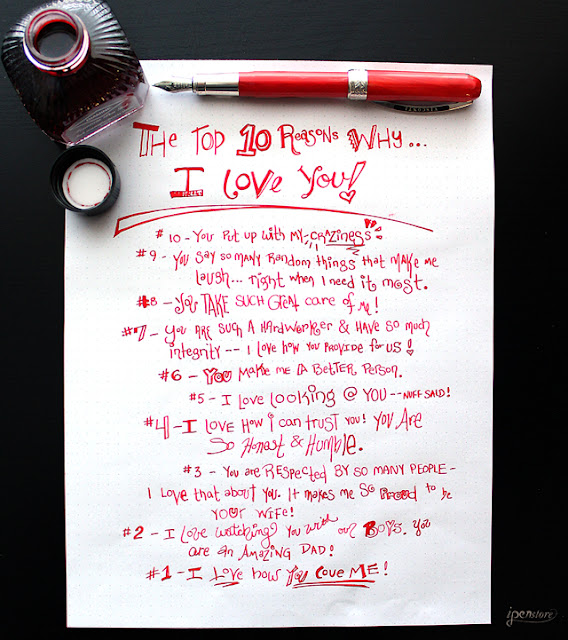 The Top 10 Reasons Why...
I Love You!
#10 - You Put up with My CRAZiNESS
#9 - You Say So Many Random things that MAKE me
laugh... right when I need it most.
#8 - You TAKE SUCH Great care of Me!
#7 - You ARE SUCH A HARdWORKER & HAVE SO Much
integrity -- I love how you PROVIDE for US!
#6 - You Make Me A BeTTER PERSON.
#5 - I Love Looking @ YOU -- NUFF SAID!
#4 - I LOVE How i can trust YOU! YOU ARE
So Honest & Humble.
#3 - You are RESPECTED BY SO MANY PEOPLE -
I Love that about You. It makes Me SO PROUD to be
YOUR WiFE!
#2 - I Love watching You with our BOYS. You
are an AMAZING DAD!
#1 - I Love how You Love ME!
ipenstore